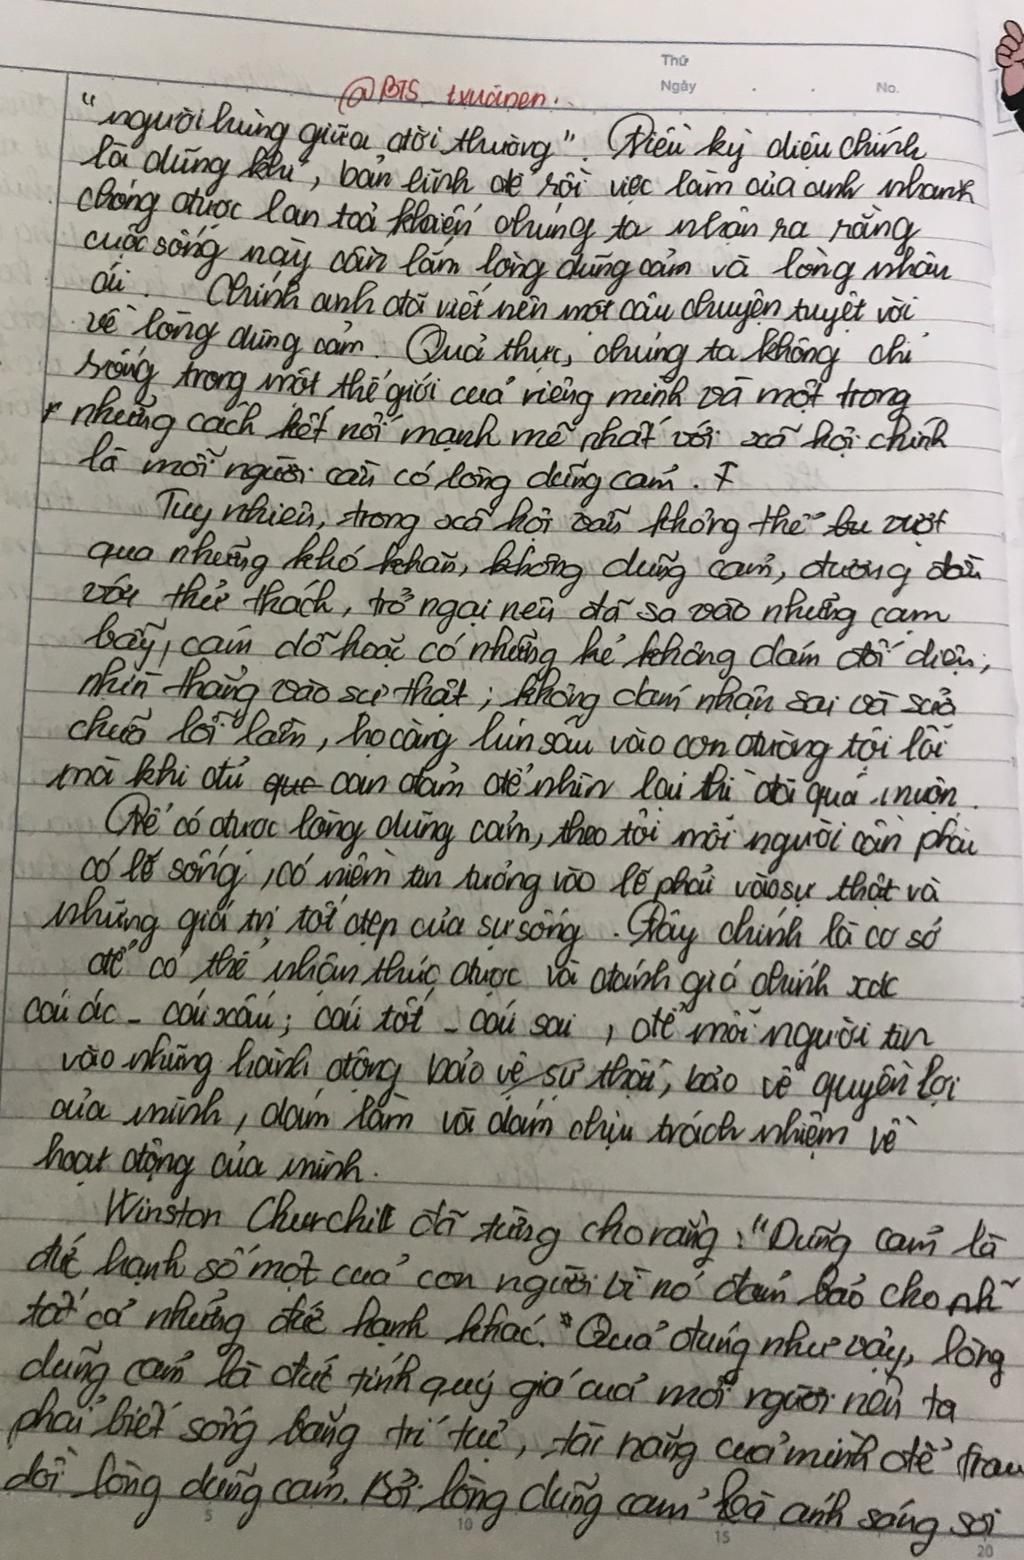 Thứ
Ngày . . No.
@BTS_txuanen..
"người hùng giữa đời thường". Điều kỳ diệu chính
là dũng khí, bản lĩnh để rồi việc làm của anh nhanh
chóng được lan toả khiến chúng ta nhận ra rằng
cuộc sống này cần lắm lòng dũng cảm và lòng nhân
ái. Chính anh đã viết nên một câu chuyện tuyệt vời
về lòng dũng cảm. Quả thực, chúng ta không chỉ
sống trong một thế giới của riêng mình và một trong
những cách kết nối mạnh mẽ nhất với xã hội chính
là mỗi người cần có lòng dũng cảm.
Tuy nhiên, trong xã hội vẫn không thể vượt
qua những khó khăn, không dũng cảm, đương đầu
với thử thách, trở ngại nên đã sa vào những cạm
bẫy, cám dỗ hoặc có những kẻ không dám đối diện,
nhìn thẳng vào sự thật; không dám nhận sai và sửa
chữa lỗi lầm, họ càng lún sâu vào con đường tội lỗi
mà khi đủ can đảm để nhìn lại thì đã quá muộn.
Để có được lòng dũng cảm, theo tôi mỗi người cần phải
có lẽ sống, có niềm tin tưởng vào lẽ phải vào sự thật và
những giá trị tốt đẹp của sự sống. Đây chính là cơ sở
để có thể nhận thức được và đánh giá chính xác
cái ác - cái xấu; cái tốt - cái sai, để mỗi người tin
vào những hành động bảo vệ sự thật, bảo vệ quyền lợi
của mình, dám làm và dám chịu trách nhiệm về
hoạt động của mình.
Winston Churchill đã từng cho rằng: "Dũng cảm là
đức hạnh số một của con người vì nó đảm bảo cho
tất cả những đức hạnh khác." Quả đúng như vậy, lòng
dũng cảm là đức tính quý giá của mỗi người nên ta
phải biết sống bằng trí tuệ, tài năng của mình để trau
dồi lòng dũng cảm. Bởi, lòng dũng cảm là ánh sáng soi
5 10 15 20